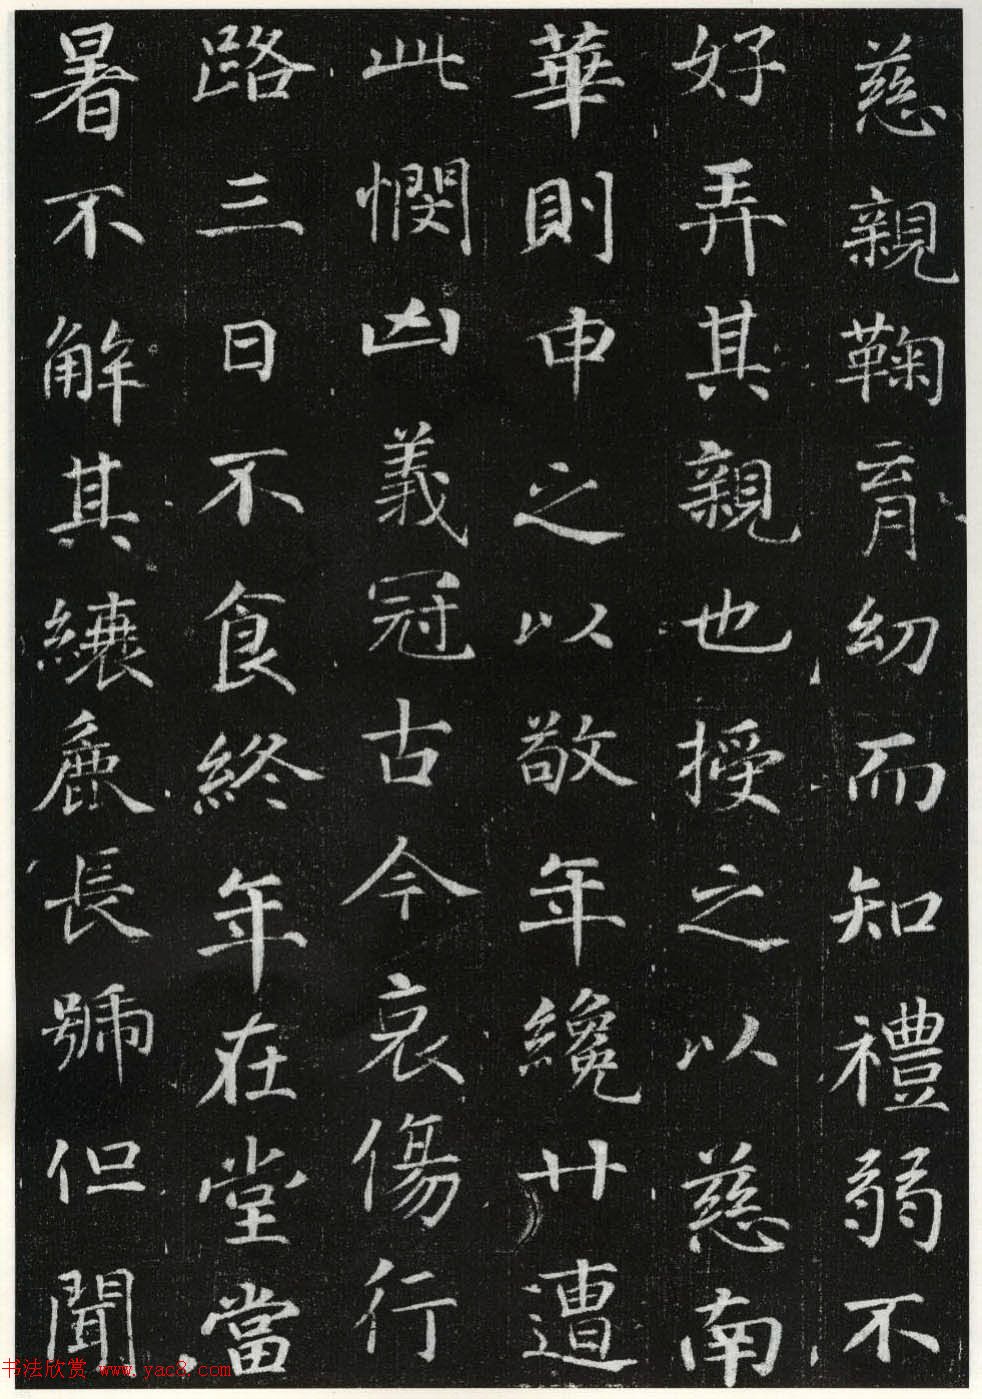 慈親鞠育幼而知禮弱不
好弄其親也授之以慈南
華則申之以敬年纔廿遭
此憫凶義冠古今哀傷行
路三日不食終年在堂當
暑不解其纕麁長號但聞
书法欣赏 www.yac8.com